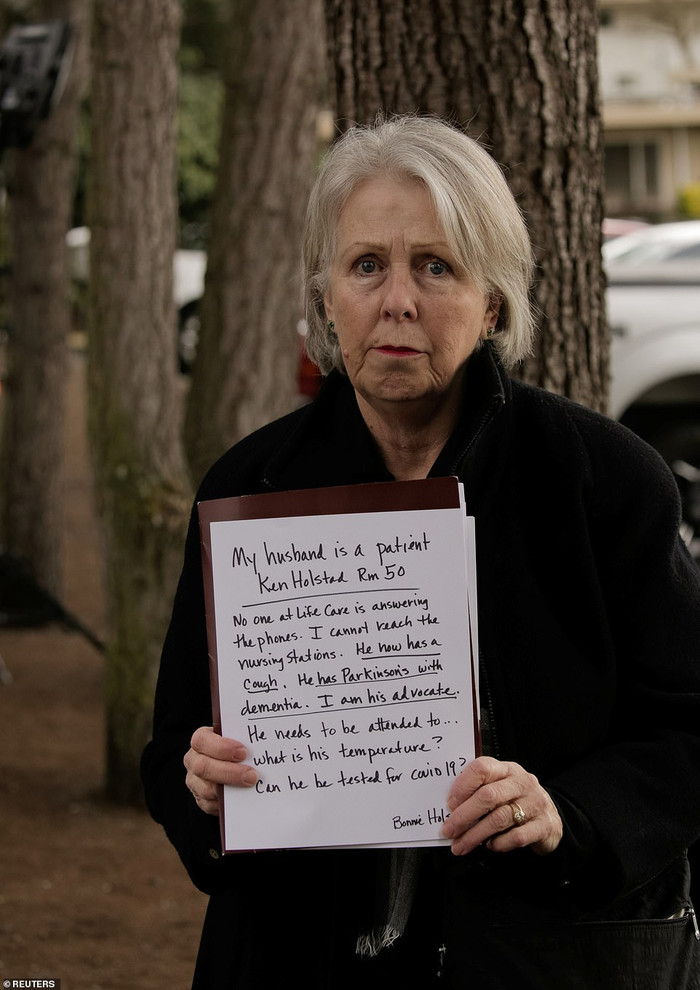 My husband is a patient
Ken Holstad Rm 50
No one at Life Care is answering
the phones. I cannot reach the
nursing stations. He now has a
cough. He has Parkinson's with
dementia. I am his advocate.
He needs to be attended to...
what is his temperature?
Can he be tested for covid 19?
Bonnie Hols
© REUTERS